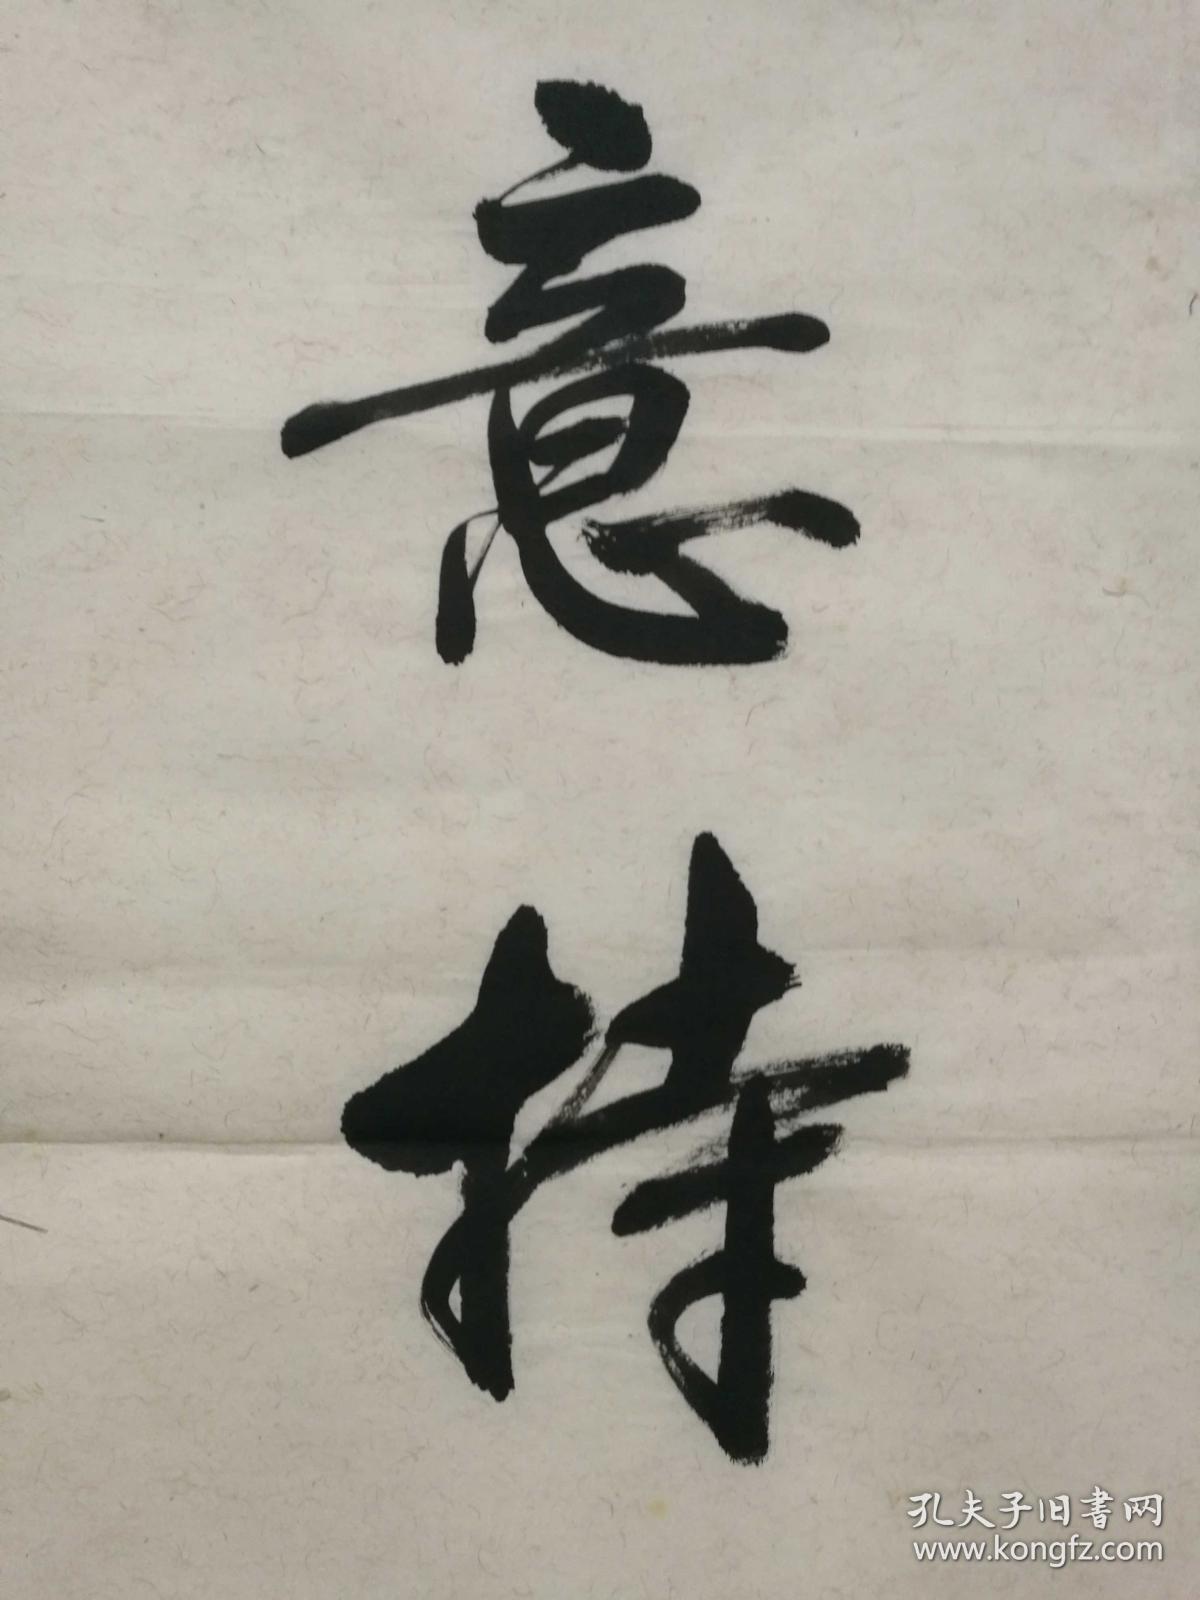 意
持
孔夫子旧書网
www.kongfz.com